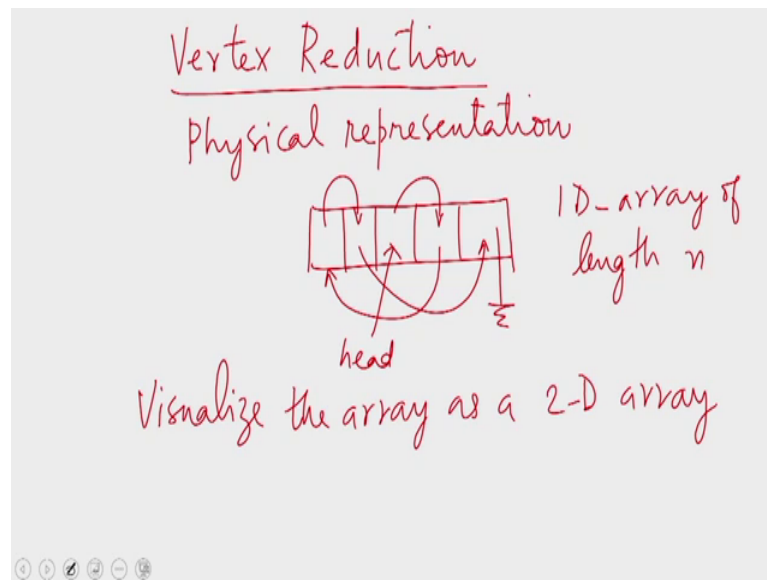 Vertex Reduction
Physical representation
1D-array of
length n
head
Visualize the array as a 2-D array